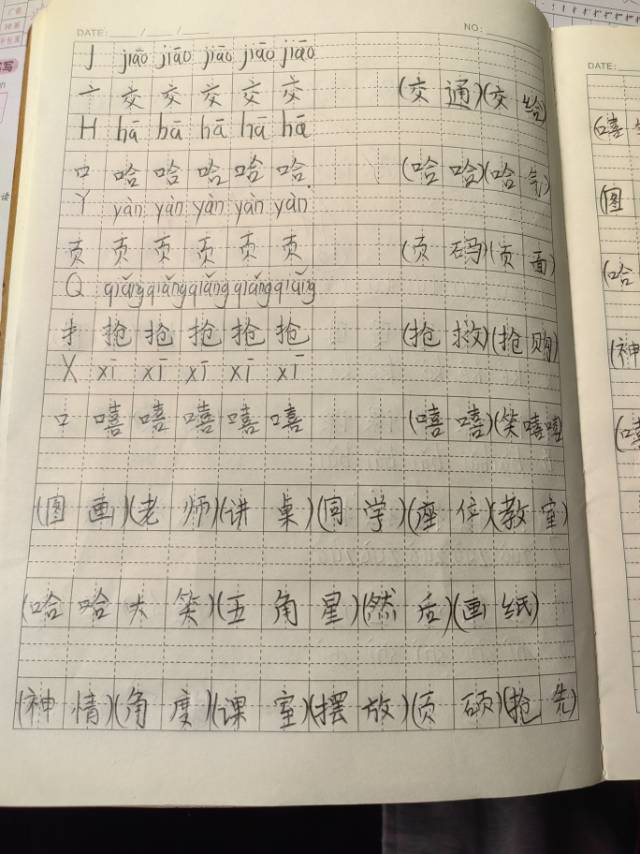 DATE: ___/___/___ NO:
J jiāo jiāo jiāo jiāo jiāo
亠 交 交 交 交 交 (交通)(交给)
H hā hā hā hā hā
口 哈 哈 哈 哈 哈 (哈哈)(哈气)
Y yàn yàn yàn yàn yàn
页 页 页 页 页 页 (页码)(页面)
Q qiǎng qiǎng qiǎng qiǎng qiǎng
扌 抢 抢 抢 抢 抢 (抢救)(抢购)
X xī xī xī xī xī
口 嘻 嘻 嘻 嘻 嘻 (嘻嘻)(笑嘻嘻)
(图画)(老师)(讲桌)(同学)(座位)(教室)
(哈哈大笑)(五角星)(然后)(画纸)
(神情)(角度)(课室)(摆放)(页硕)(抢先)
DATE:
(嘻
(图
(哈
(神
(嘻